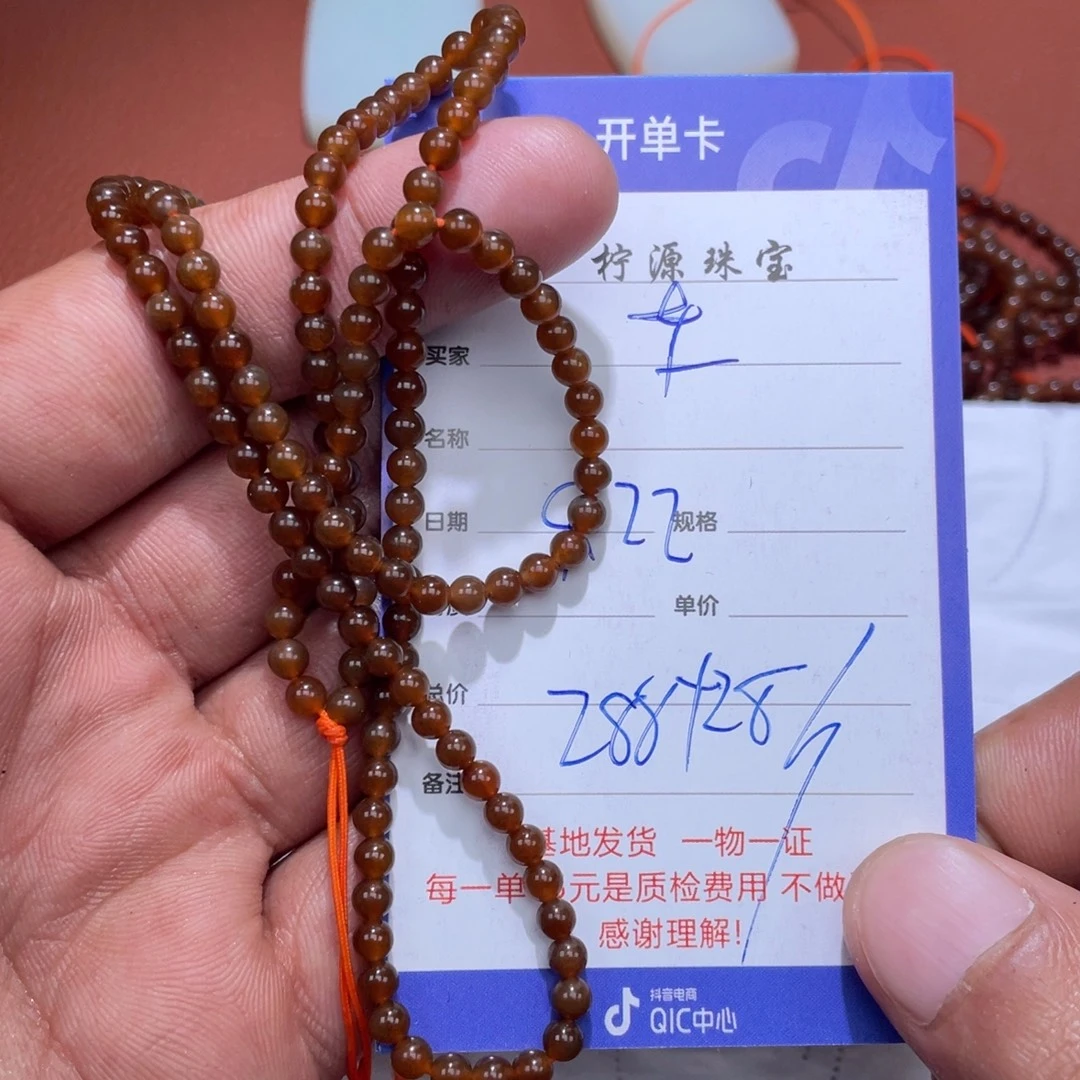 开单卡
柠源珠宝
买家
名称
日期 22 规格
单价
总价 288+28
备注
基地发货 一物一证
每一单 元是质检费用 不做
感谢理解!
抖音电商
QIC中心